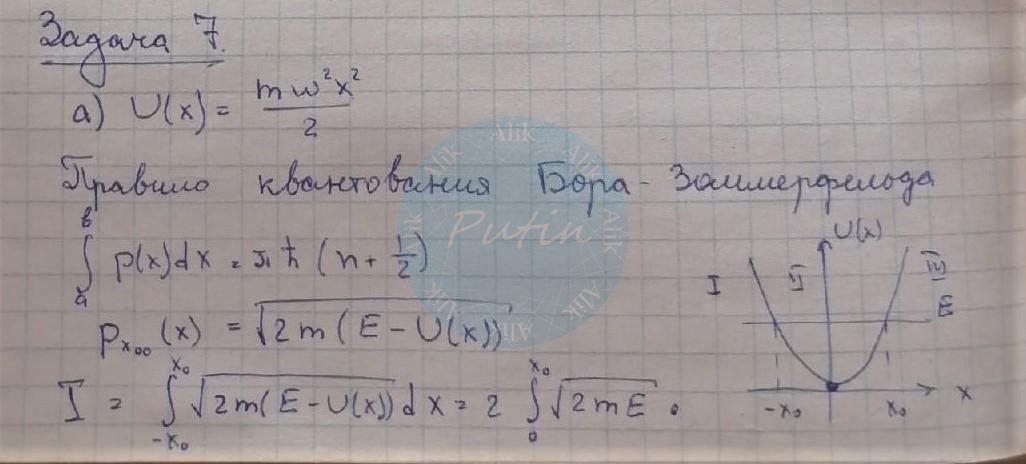 Задача 7.
а) U(x) = mω²x²/2
Правило квантования Бора-Зоммерфельда
∫ₐᵇ p(x)dx = πħ (n + 1/2)
pₓ₀₀(x) = √(2m(E - U(x)))
I = ∫₋ₓ₀ˣ⁰ √(2m(E - U(x))) dx = 2 ∫₀ˣ⁰ √(2mE) .
U(x)
I II III
E
-x₀ x₀ x
Alik Putin